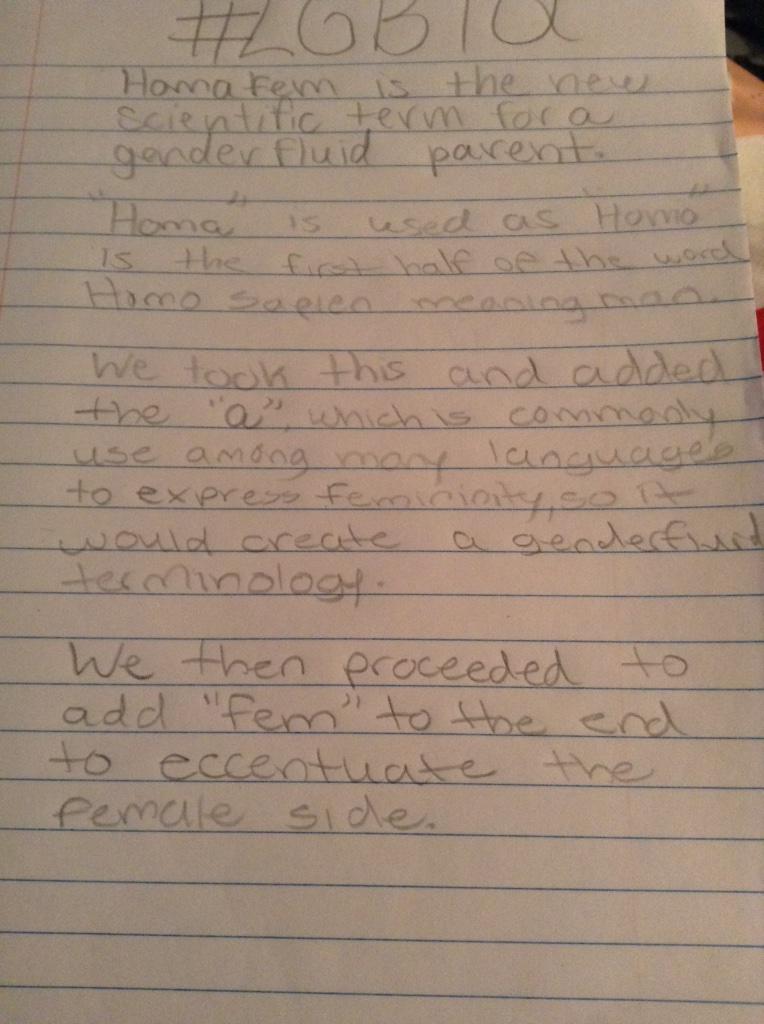 #LGBTQ
Homafem is the new
scientific term for a
genderfluid parent.
"Homa" is used as "Homo"
is the first half of the word
Homo sapien meaning man.
We took this and added
the "a", which is commonly
use among many languages
to express femininity, so it
would create a genderfluid
terminology.
We then proceeded to
add "fem" to the end
to eccentuate the
female side.